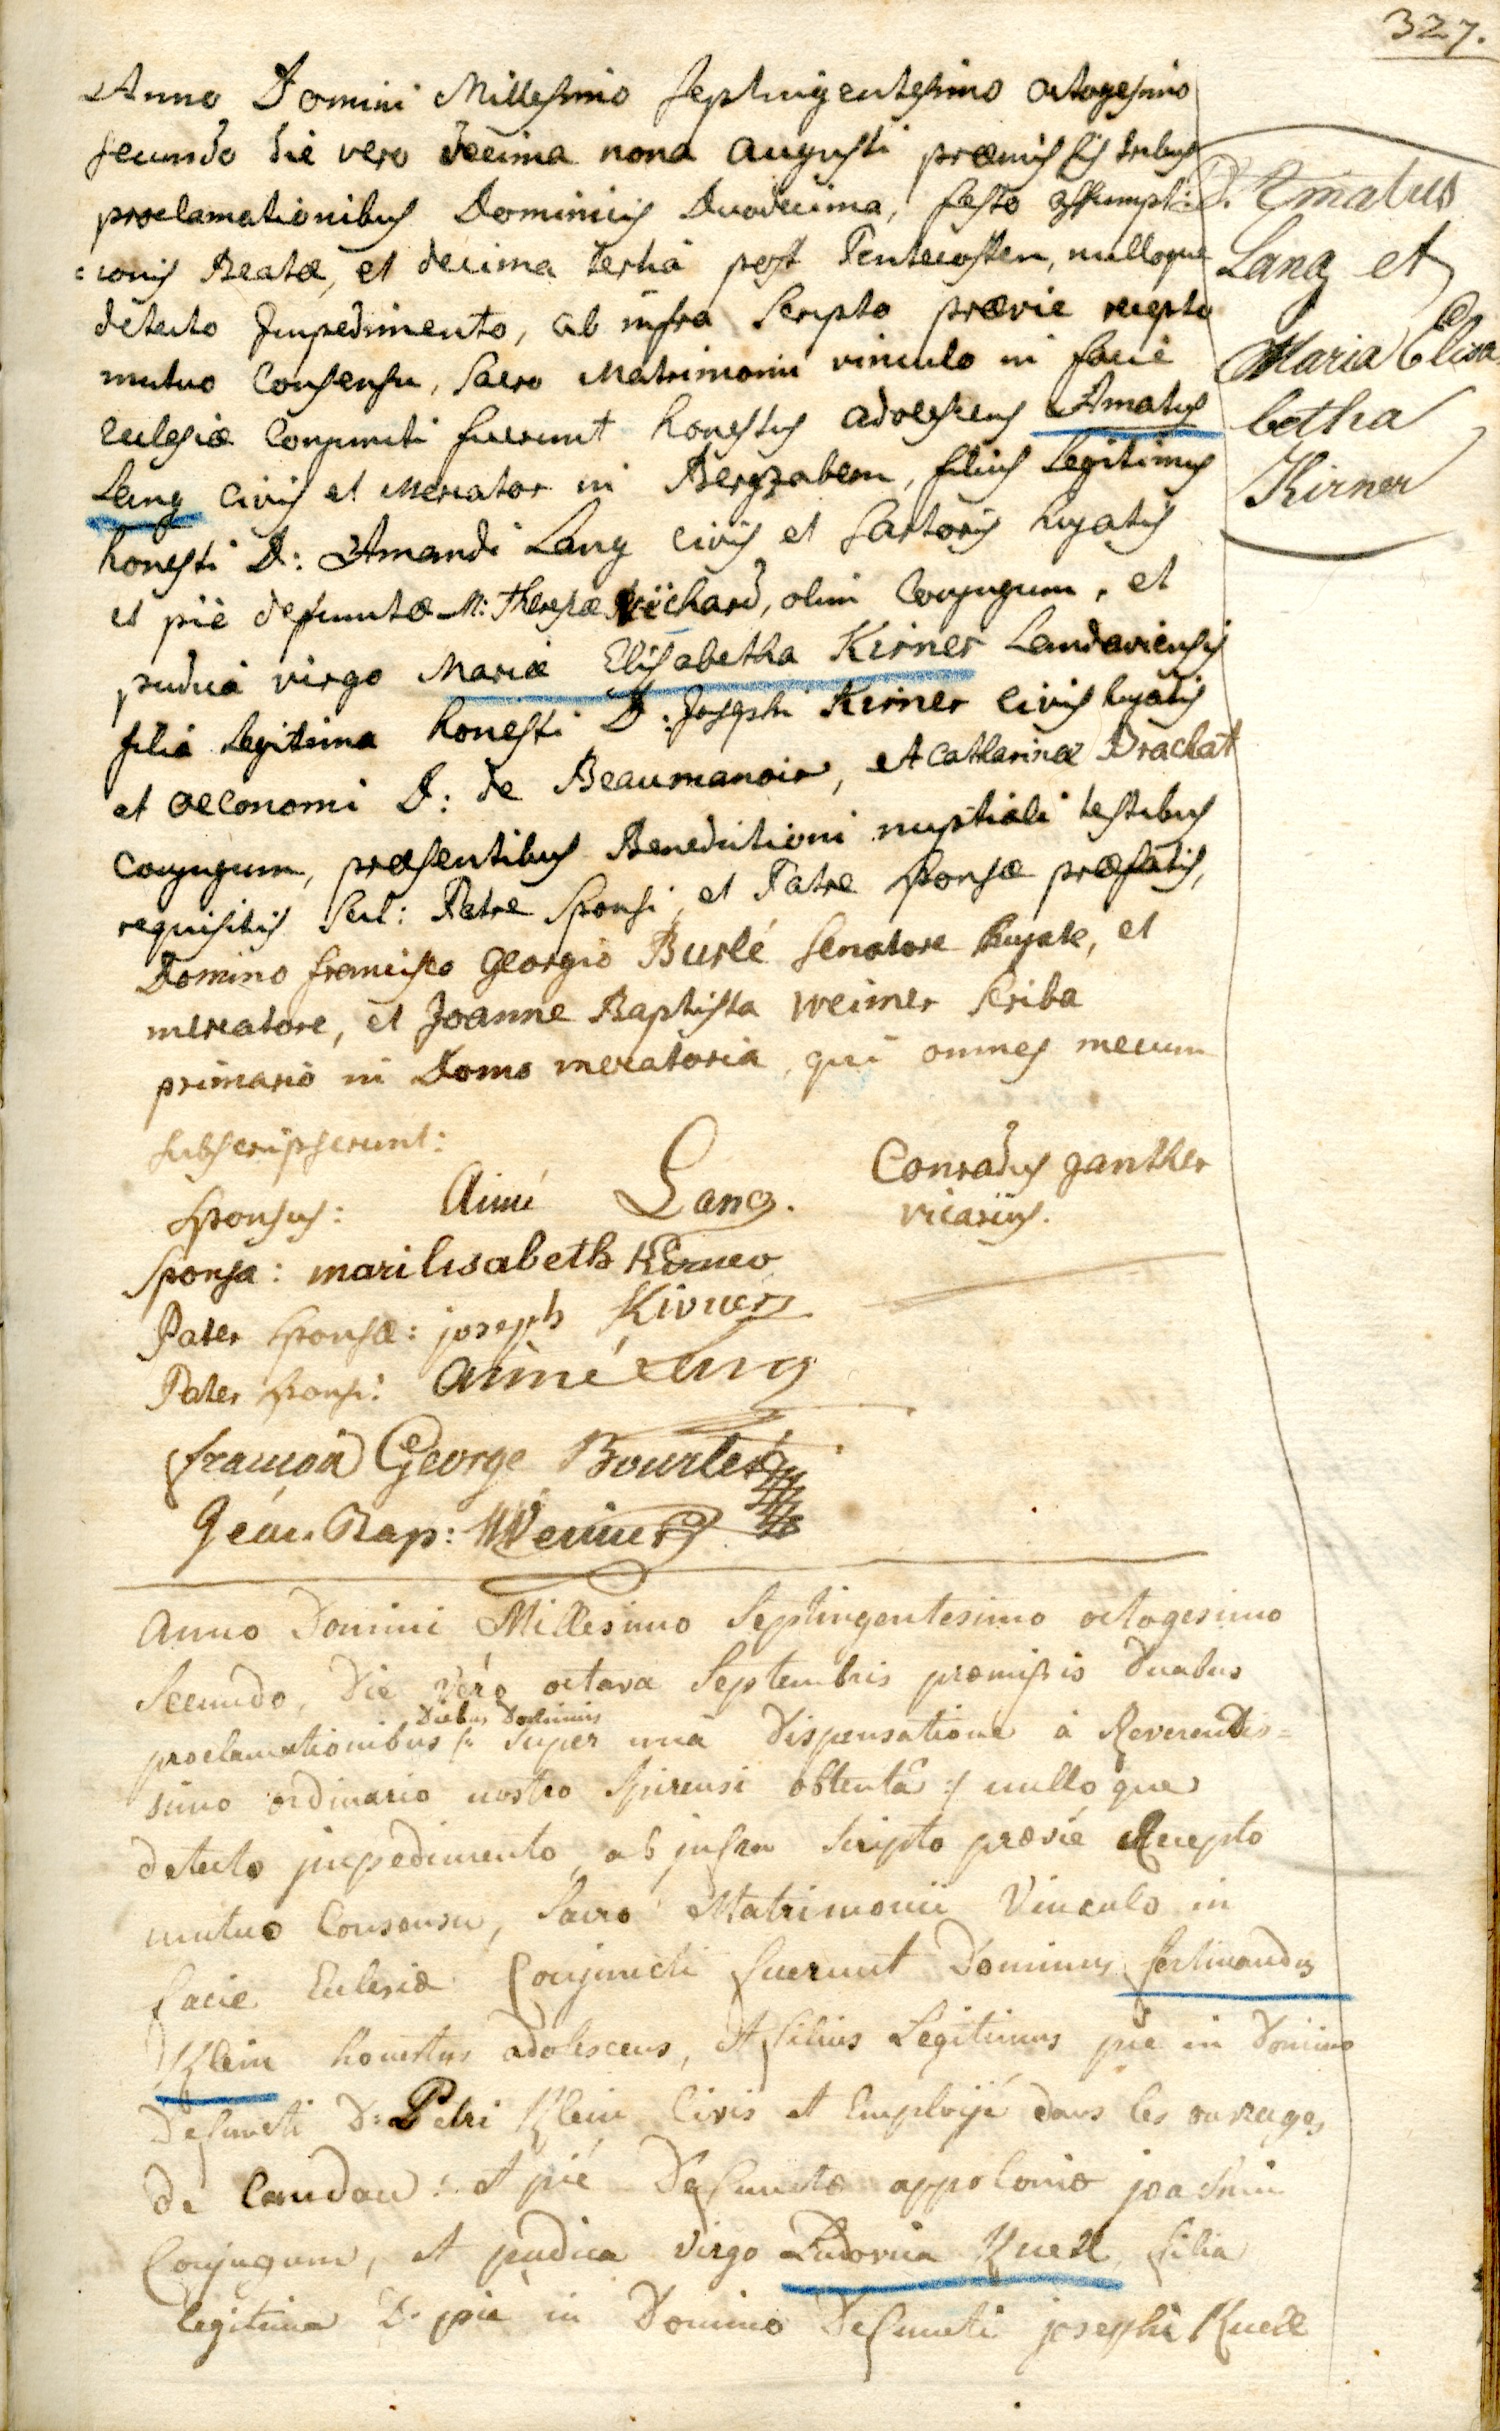 327.
Anno Domini Millesimo septingentesimo octogesimo
secundo die vero decima nona Augusti præmissis tribus
proclamationibus Dominicis Duodecima, festo assumpt:
=ionis Beatæ, et decima tertia post Pentecosten, nulloque
detecto Impedimento, ab infra scripto prævie recepto
mutuo Consensu, Sacro Matrimonii vinculo in facie
Ecclesiæ Conjuncti fuerunt honestus adolescens Amatus
Lang civis et Mercator in Bergzabern, filius Legitimus
honesti D: Amandi Lang civis et sartoris hujatis
et piè defunctæ M: Theresæ Richard, olim Conjugum, et
pudica virgo Maria Elisabetha Kirner Landaviensis
filia Legitima honesti D: Josephi Kirner civis hujatis
et oeconomi D: de Beaumanoir, et Catharinæ Brachat
Conjugum, præsentibus Benedictioni nuptiali testibus
requisitis Scil: Patre Sponsi, et Patre Sponsæ præfatis,
Domino francisco Georgio Burlé senatore hujate, et
mercatore, et Joanne Baptista Weimer scriba
primario in Domo mercatoria, qui omnes mecum
subscripserunt:
D. Amatus
Lang et
Maria Elisa
betha
Kirner
Sponsus: Aimé Lang.
Conradus Ganther
vicarius.
Sponsa: marilisabeth Kirner
Pater sponsæ: joseph Kirner
Pater sponsi: aimé Lang
françois George Bourlé
Jean. Bap: Weimer
Anno Domini Millesimo Septingentesimo octogesimo
Secundo, Die vero octava Septembris præmissis Duabus
Diebus Dominicis
proclamationibus /: super una Dispensatione à Reverendis=
simo ordinario nostro Spirensi obtentâ :/ nulloque
detecto jmpedimento, ab jnfra scripto prævié Recepto
mutuo Consensu, Sacro Matrimonii Vinculo in
facie Eclesiæ Conjuncti fuerunt Dominus ferdinandus
Klein honestus adolescens, et filius Legitimus pie in Domino
Defuncti D: Petri Klein Civis et Employé dans les ouvrages
de Landau: et pié Defunctæ appoloniæ
Conjugum, et pudica virgo Ludovica Kuell filia
legitima D. pié in Domino Defuncti josephi Kuell